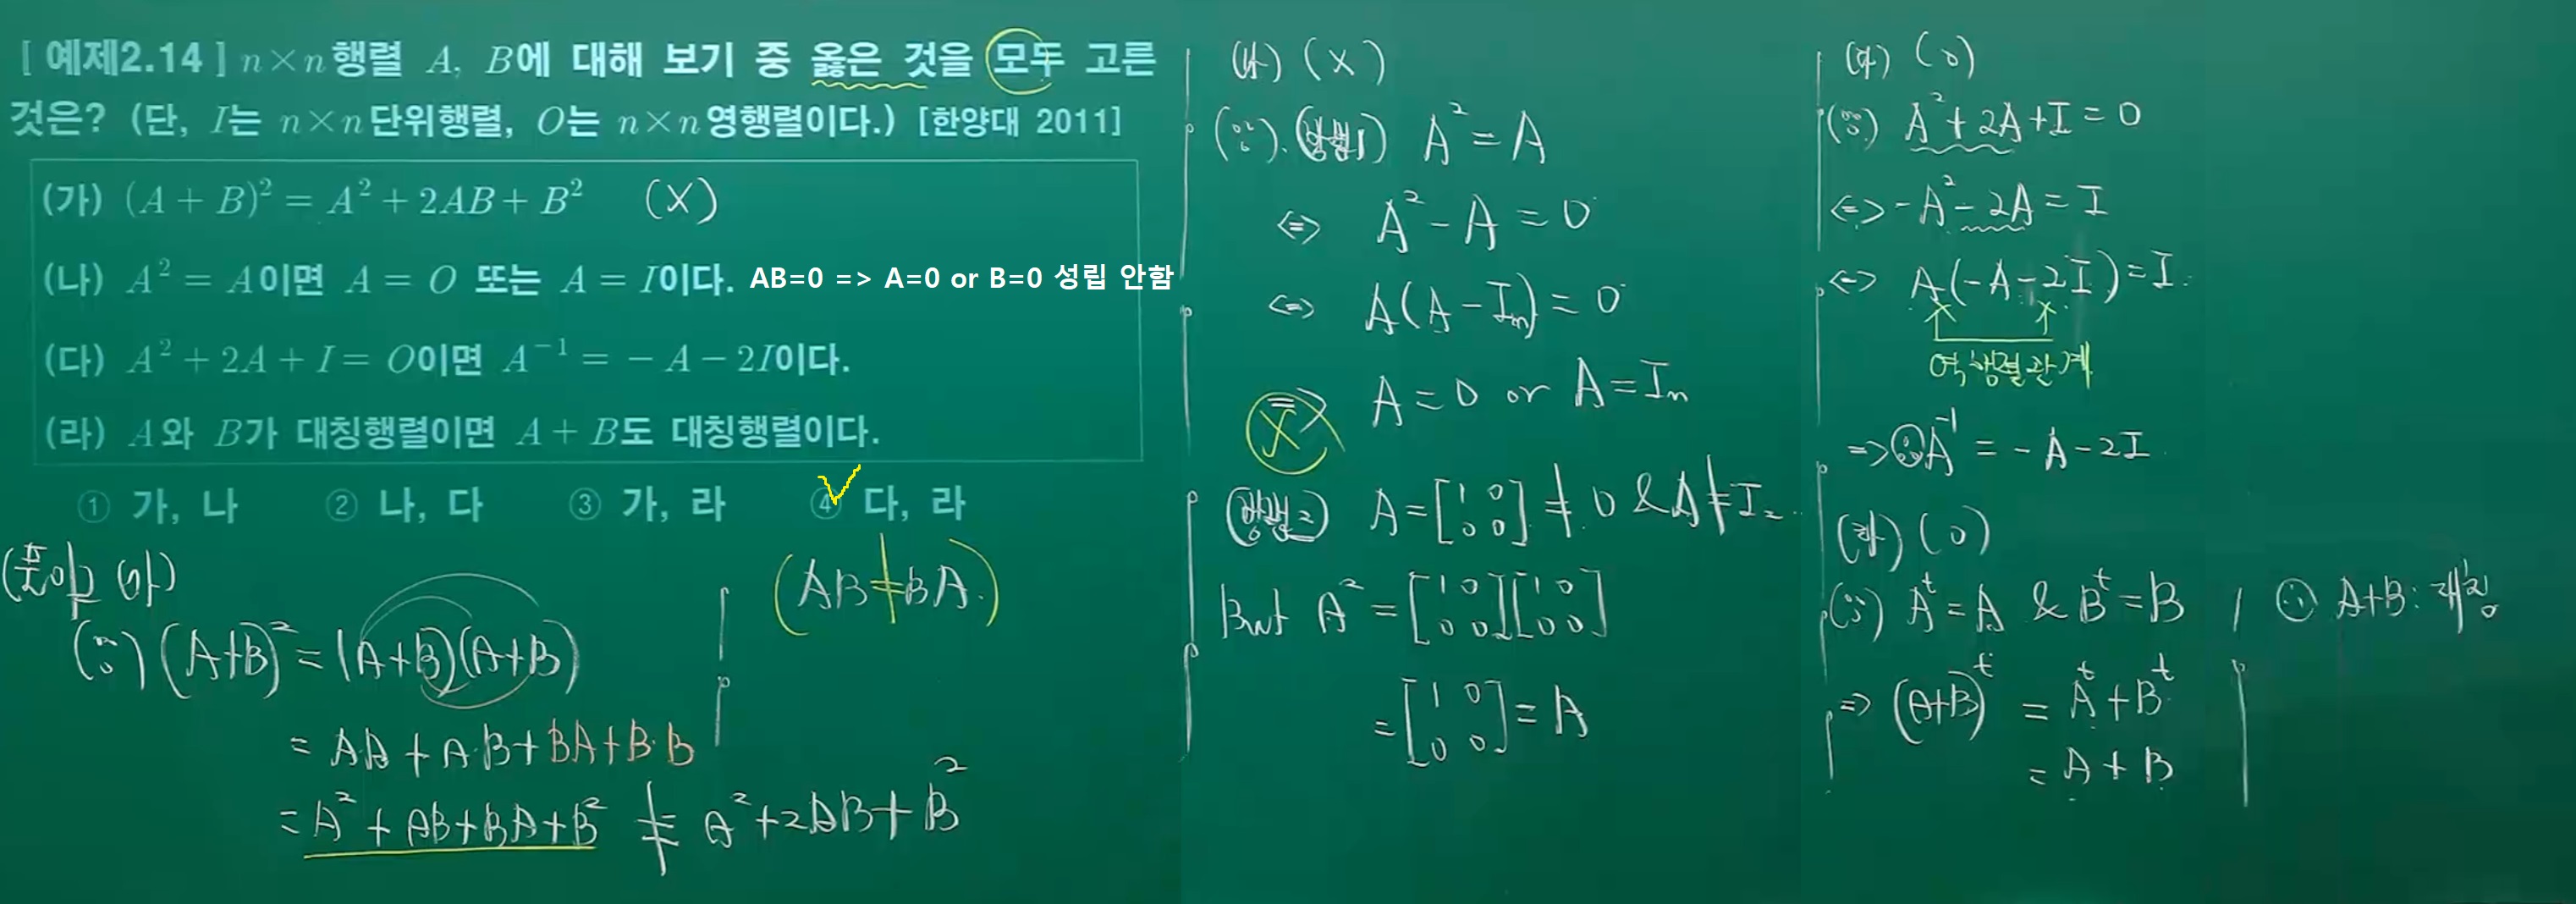 [ 예제2.14 ] n×n행렬 A, B에 대해 보기 중 옳은 것을 모두 고른
것은? (단, I는 n×n단위행렬, O는 n×n영행렬이다.) [한양대 2011]
(가) (A + B)² = A² + 2AB + B² (X)
(나) A² = A이면 A = O 또는 A = I이다. AB=0 => A=0 or B=0 성립 안함
(다) A² + 2A + I = O이면 A⁻¹ = − A − 2I이다.
(라) A와 B가 대칭행렬이면 A + B도 대칭행렬이다.
① 가, 나 ② 나, 다 ③ 가, 라 ④ 다, 라
(AB≠BA.)
(∵) (A+B)² = (A+B)(A+B)
= A·A + A·B + BA + B·B
= A² + AB + BA + B² ≠ A² + 2AB + B²
(나) (X)
(∵) (방법1) A² = A
⇔ A² − A = 0
⇔ A(A − Iₙ) = 0
⇒ X A = 0 or A = Iₙ
(방법2) A = [1 0 0 0] ≠ 0 & A ≠ I₂
But A² = [1 0 0 0][1 0 0 0]
= [1 0 0 0] = A
(다) (O)
(∵) A² + 2A + I = 0
⇔ −A² − 2A = I
⇔ A(−A − 2I) = I
역행렬관계
⇒ ∴ A⁻¹ = −A − 2I
(라) (O)
(∵) Aᵗ = A & Bᵗ = B
⇒ (A+B)ᵗ = Aᵗ + Bᵗ
= A + B
∴ A+B : 대칭